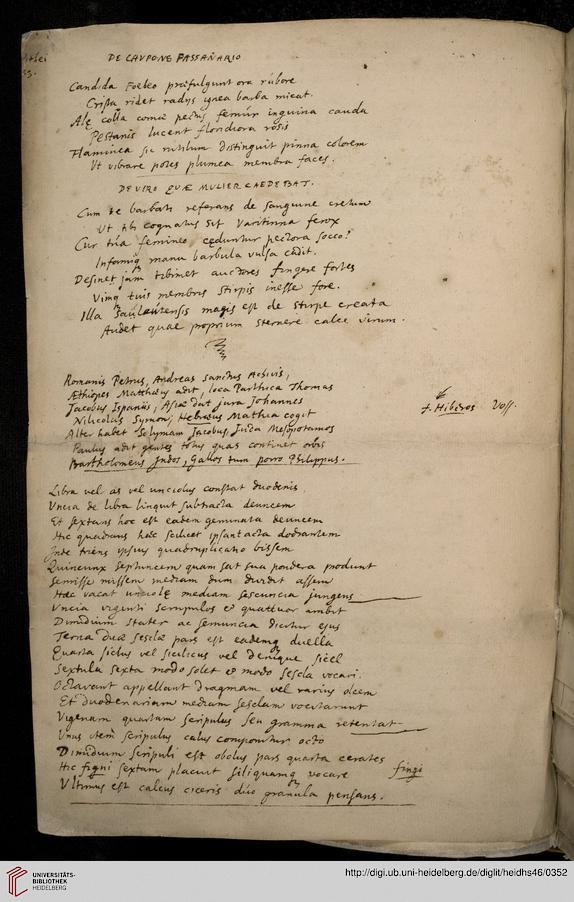 DE CAVPONE FASSANARIO
Candida Foebeo praefulgunt ora rubore
Crista ridet radijs ignea barba micat.
Alę colla comae pectus femur inguina cauda
Pestanis lucent floridiora rosis
Flaminea sic rutilum distinguit pinna colorem
Ut vibrare putes plumea membra faces.
DE VIRO QVAE MVLIER CAEDEBAT.
Cum te barbati referans de sanguine cretum
Ut tibi cognatus sit ferox
Cur tria femineo cęduntur pectora socco?
manu barbula vulsa cadit.
Desinet jam tibimet auctores fingere fortes
Vimq tuis membris stirpis inesse fore.
Illa magis est de stirpe creata
Audet quae proprium sternere calce virum.
Romanis Petrus, Andreas sanctus Achivis,
Æthiopes Matthaeus adit, loca Parthica Thomas
Jacobus Ispaniis, Asiae dat jura Johannes
Nilicolas Symon; Hebraeus Mathia cogit
Alter habet Solymam Jacobus, Juda Mesopotamos
Paulus adit gentes totus quas continet orbis
Bartholomeus Indos, Gallos tum porro Philippus.
f. Hiberos Voss.
Libra vel as vel unciolis constat duodenis
Vncia de libra linquit subtracta deuncem
Et sextans hoc est eadem geminata deuncem
Hic quadrans haec scilicet ipsa tacta dodrantem
Inde triens ipsius quadruplicatio bissem
Quincunx septuncem quam sat sua pondera produnt
Semisse missem mediam dum dividit assem
Haec vacat unciolę mediam sescuncia jungens
Vncia viginti scrupulos & quattuor ambit
Dimidium stater ac semuncia dicitur ejus
Terna duae sesclae pars est eademq duella
Quarta siclus vel sicilicus vel denique sicel
Sextula sexta modo solet & modo sescla vocari.
Octavam appellant dragmam vel rarius olcem
Et duodenariam mediam sesclam vocitarunt
Vigenam quartam scripulus seu gramma retentat
Vnus item scripulus calcis componitur octo
Dimidium scripuli est obolus pars quarta cerates
Hic figni sextam placuit siliquamq vocare
fingi
Vltimus est calcus ciceris duo granula pensans.
UNIVERSITÄTS-
BIBLIOTHEK
HEIDELBERG
http://digi.ub.uni-heidelberg.de/diglit/heidhs46/0352